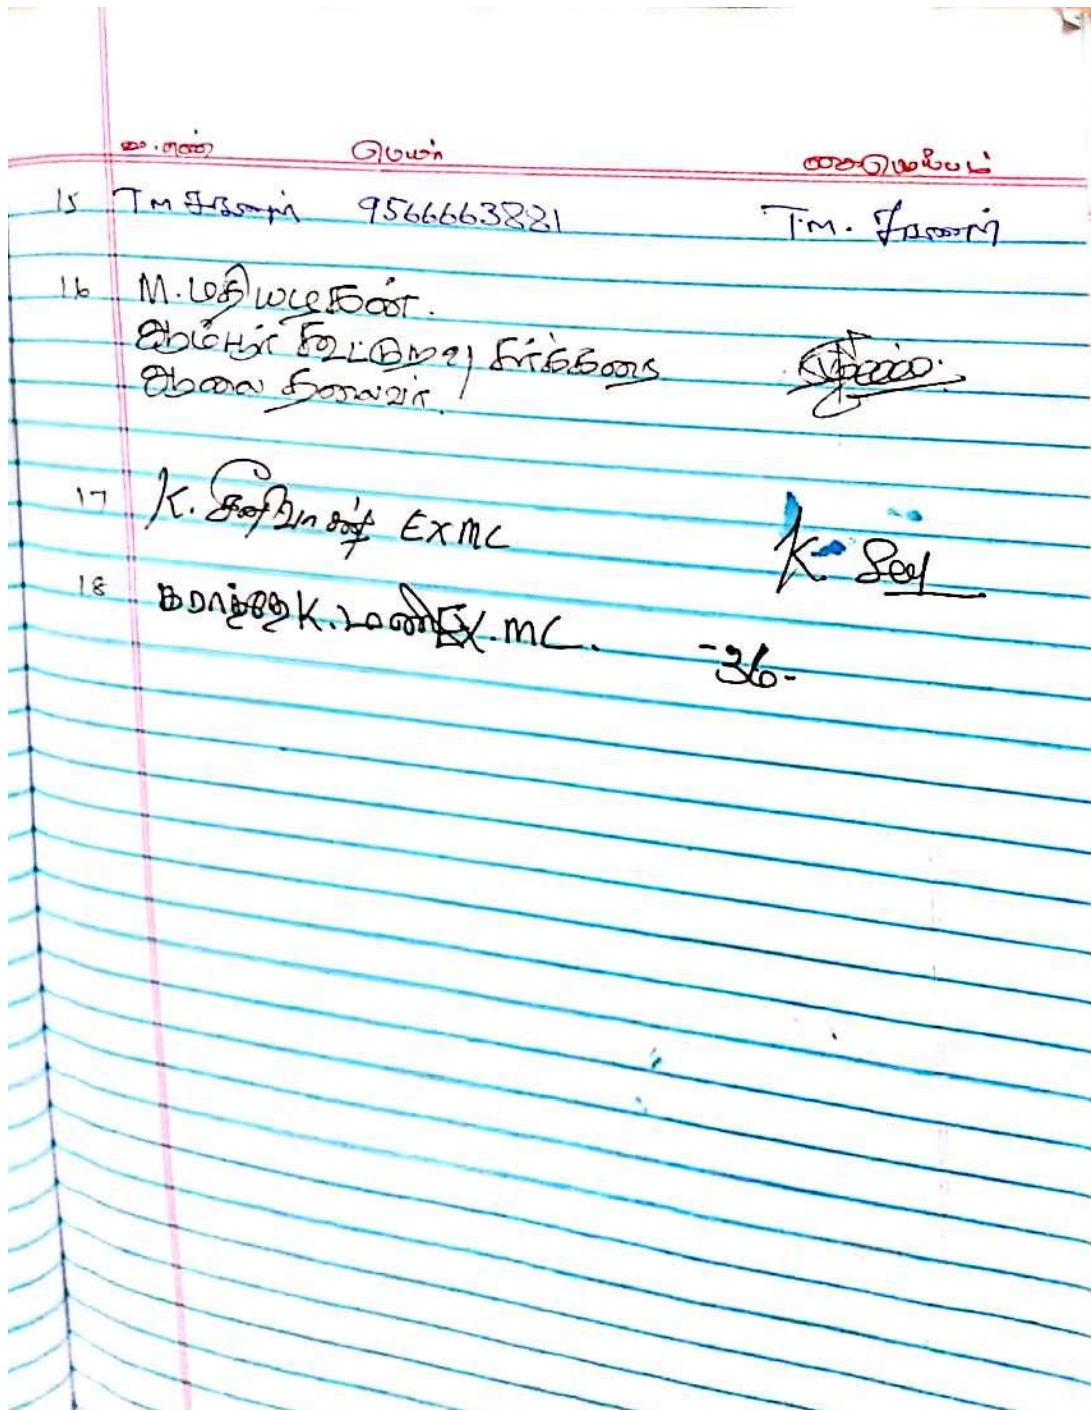 வ.எண் பெயர் கையொப்பம்
15 T.M சரவணன் 9566663881 T.M. சரவணன்
16 M. மதியழகன்.
ஆம்பூர் கூட்டுறவு சர்க்கரை
ஆலை தலைவர்.
17 K. சீனிவாசன் EX MC K.
18 கராத்தே K. மணி EX. MC. -36-